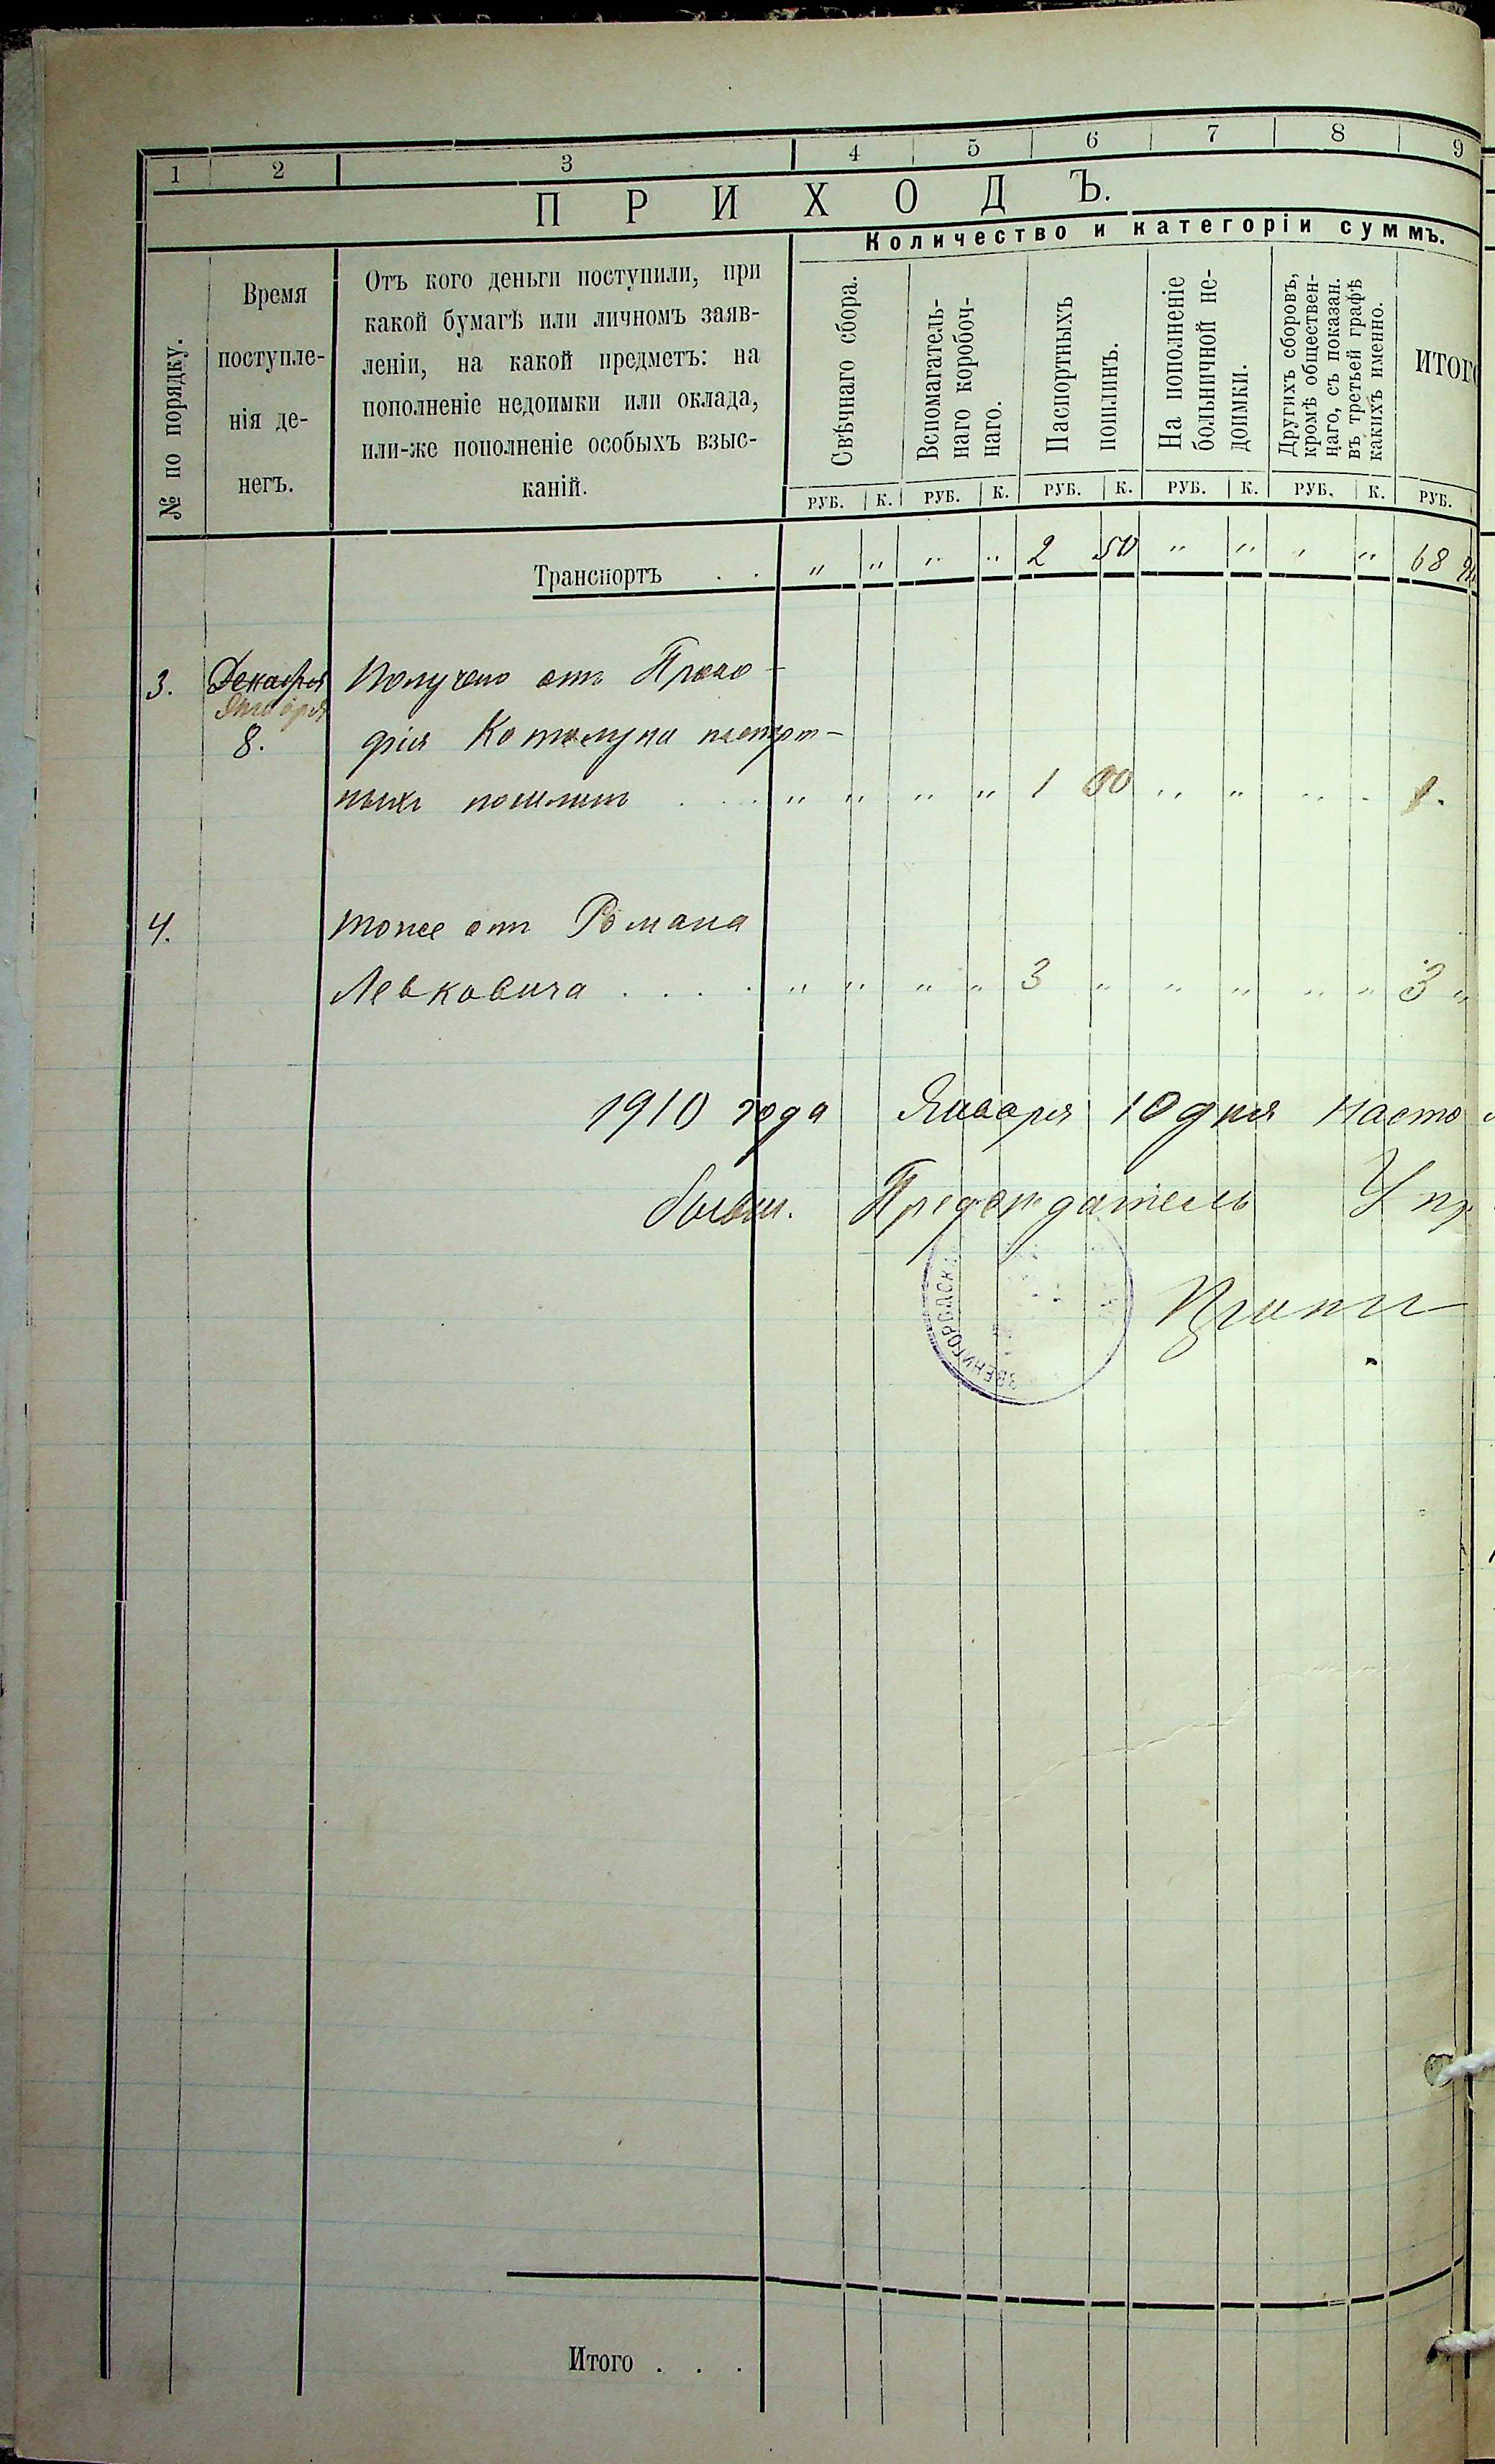 1 2 3 4 5 6 7 8 9
ПРИХОДЪ.
Количество и категоріи суммъ.
№ по порядку.
Время
поступле-
нія де-
негъ.
Отъ кого деньги поступили, при
какой бумагѣ или личномъ заяв-
леніи, на какой предметъ: на
пополненіе недоимки или оклада,
или-же пополненіе особыхъ взыс-
каній.
Свѣчнаго сбора.
Вспомагатель-
наго коробоч-
наго.
Паспортныхъ
пошлинъ.
На пополненіе
больничной не-
доимки.
Другихъ сборовъ,
кромѣ обществен-
наго, съ показан.
въ третьей графѣ
какихъ именно.
ИТОГО
РУБ. К. РУБ. К. РУБ. К. РУБ. К. РУБ. К. РУБ.
Транспортъ . . " " " " 2 50 " " " " 68
3. Декабря Получено отъ Проко-
8. фія паспорт-
ныхъ пошлинъ . . . " " " " 1 00 " " " " 1.
4. тоже отъ Романа
Левковича . . . . " " " " 3 " " " " " 3 "
1910 года Января 10 дня насто
Председатель Упр
ЗВЕНИГОРОДСКА
Итого . . .